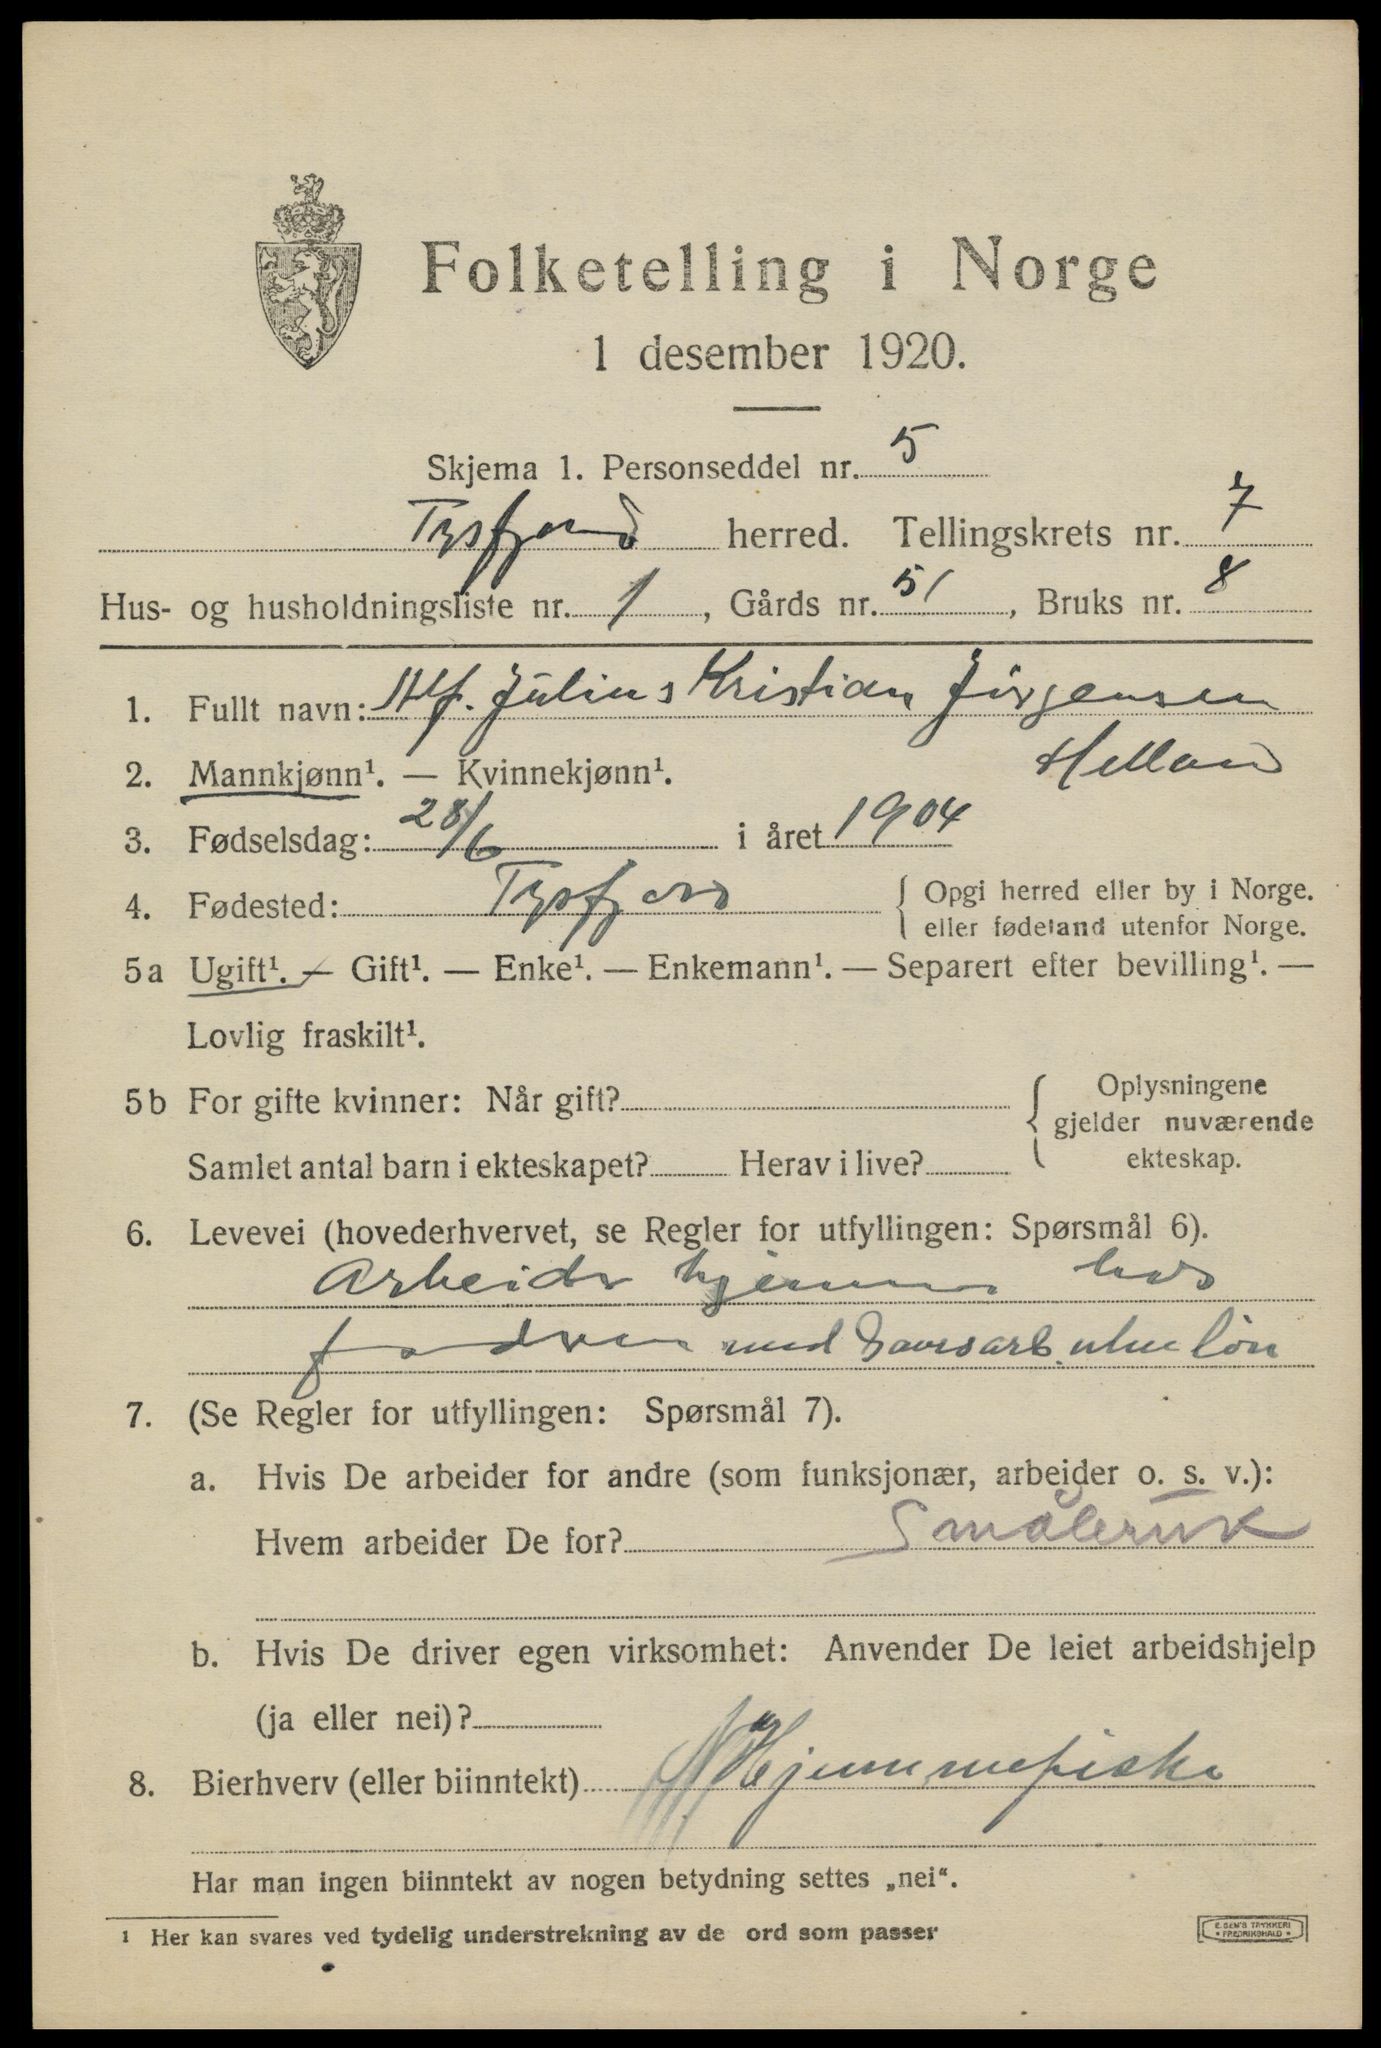 Folketelling i Norge
1 desember 1920.
Skjema 1. Personseddel nr. 5
Tysfjord herred. Tellingskrets nr. 7
Hus- og husholdningsliste nr. 1, Gårds nr. 51, Bruks nr. 8
1. Fullt navn: Alf. Julius Kristian Jörgensen
2. Mannkjønn¹. — Kvinnekjønn¹. Helland
3. Fødselsdag: 28/6 i året 1904
4. Fødested: Tysfjord { Opgi herred eller by i Norge.
eller fødeland utenfor Norge.
5a Ugift¹. — Gift¹. — Enke¹. — Enkemann¹. — Separert efter bevilling¹. —
Lovlig fraskilt¹.
5b For gifte kvinner: Når gift? { Oplysningene
gjelder nuværende
Samlet antal barn i ekteskapet? Herav i live? ekteskap.
6. Levevei (hovederhvervet, se Regler for utfyllingen: Spørsmål 6).
Arbeider hjemme hos
fadren med Gaardsarb. uten lön
7. (Se Regler for utfyllingen: Spørsmål 7).
a. Hvis De arbeider for andre (som funksjonær, arbeider o. s. v.):
Hvem arbeider De for? Småbruk
b. Hvis De driver egen virksomhet: Anvender De leiet arbeidshjelp
(ja eller nei)?
8. Bierhverv (eller biinntekt) Hjemmefiske
Har man ingen biinntekt av nogen betydning settes „nei“.
¹ Her kan svares ved tydelig understrekning av de ord som passer
E. SEM'S TRYKKERI
• FREDRIKSHALD •